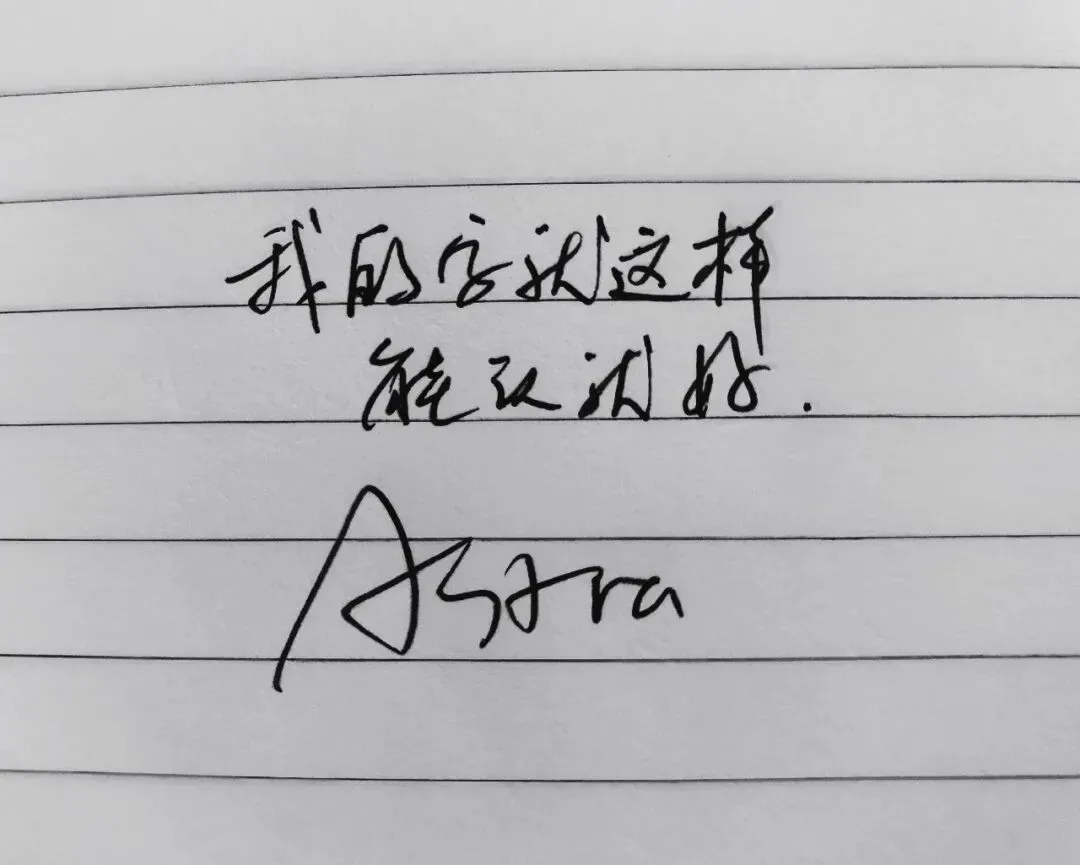 我的字就这样
能认就好.
Astra